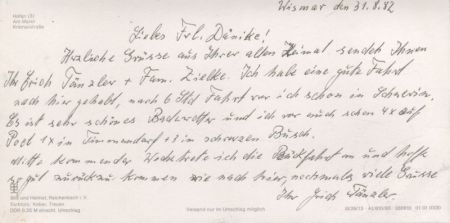 Wismar den 31.8.82
Hafen (3)
Am Markt
Krämerstraße
Liebes Frl. Dänike!
Herzliche Grüsse aus Ihrer alten Heimat sendet Ihnen
Ihr Erich Tänzler + Fam. Zielke. Ich habe eine gute Fahrt
nach hier gehabt, nach 6 Std Fahrt war ich schon in Schwerin.
Es ist sehr schönes Badewetter und ich war auch schon 4x auf
Poel 1x in Timmendorf + 3 in schwarzen Busch.
Mitte kommender Woche trete ich die Rückfahrt an und hoffe
so gut zurück zu kommen wie nach hier, nochmals viele Grüsse
Ihr Erich Tänzler
Bild und Heimat, Reichenbach i. V.
DDR 0,35 M einschl. Umschlag
Versand nur im Umschlag möglich